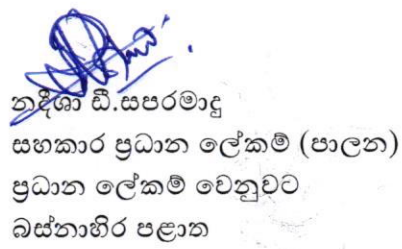 නදීශා ඩී.සපරමාදු
සහකාර ප්‍රධාන ලේකම් (පාලන)
ප්‍රධාන ලේකම් වෙනුවට
බස්නාහිර පළාත